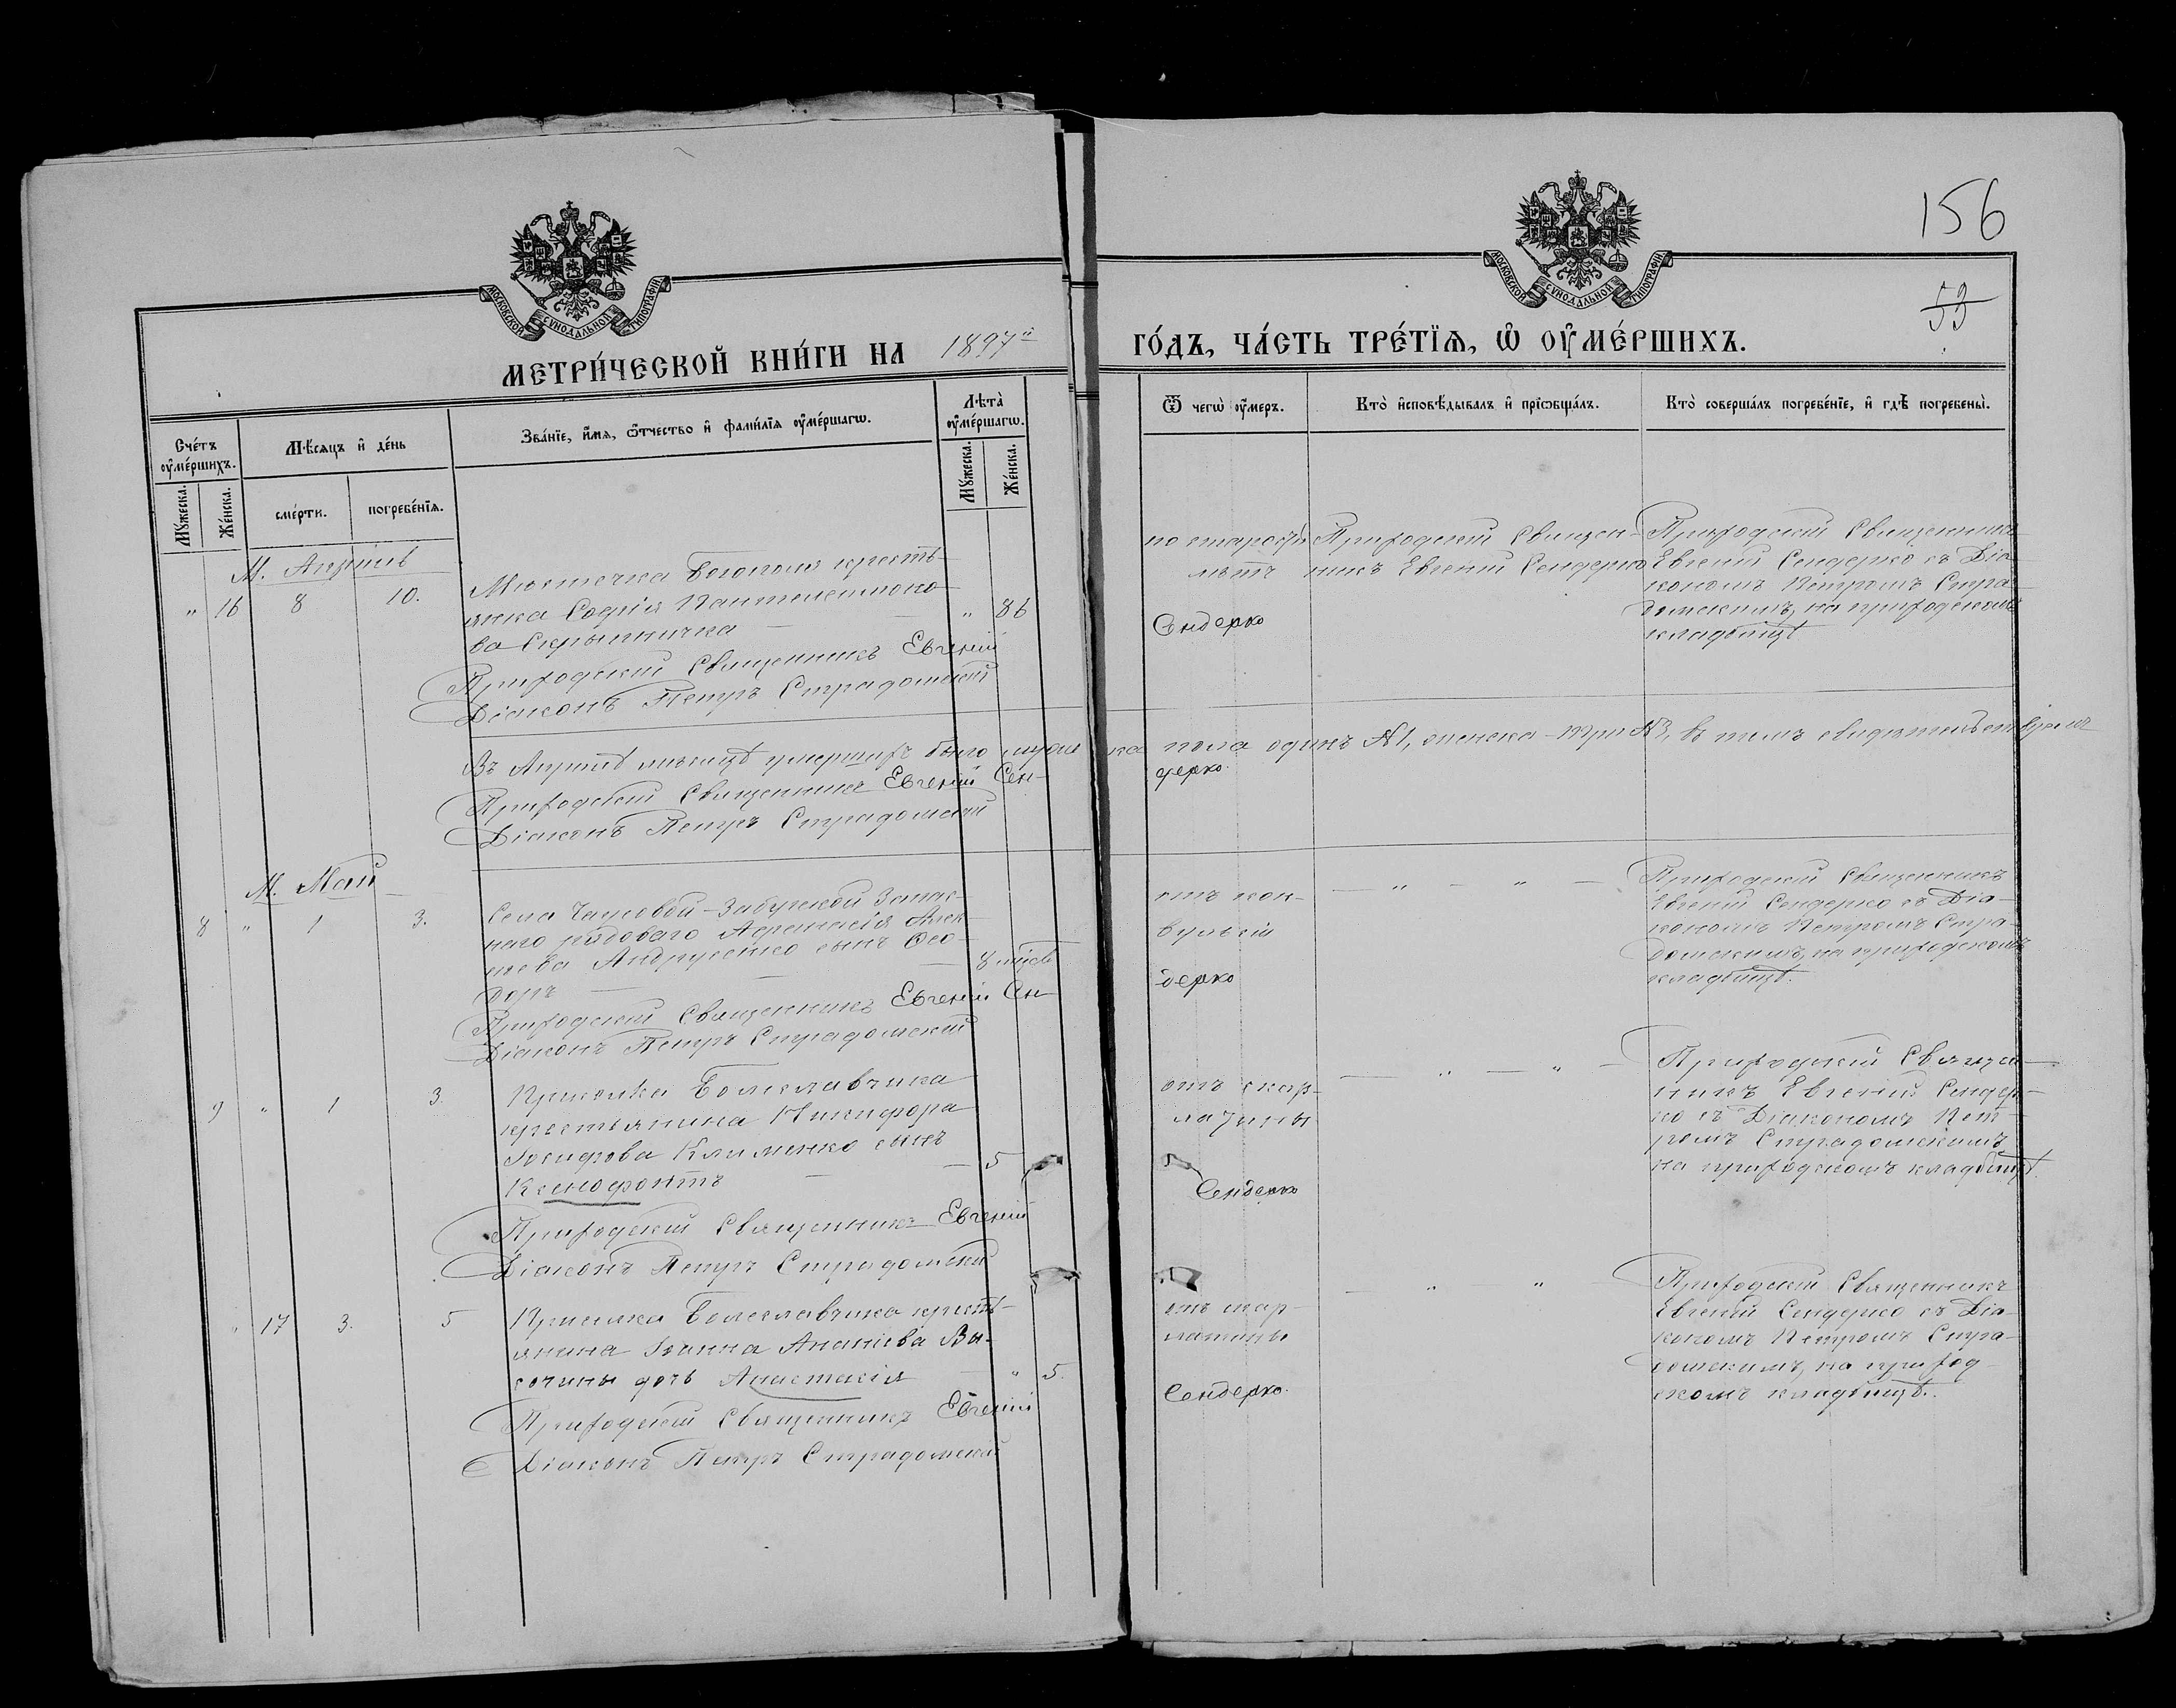 156
59
МОСКОВСКОЙ СѴНОДАЛЬНОЙ ТИПОГРАФІИ
МОСКОВСКОЙ СѴНОДАЛЬНОЙ ТИПОГРАФІИ
МЕТРИ́ЧЕСКОЙ КНИ́ГИ НА 1897й ГО́ДЪ, ЧА́СТЬ ТРЕ́ТЇѦ, Ѡ҆ ОУ҆МЕ́РШИХЪ.
Сче́тъ оу҆ме́ршихъ.
Мꙋ́жеска.
Же́нска.
Мѣ́сѧцъ и҆ де́нь
сме́рти.
погребе́нїѧ.
Зва́нїе, и҆́мѧ, ѻ҆́тчество и҆ фами́лїѧ оу҆ме́ршагѡ.
Лѣта̀ оу҆ме́ршагѡ.
Мꙋ́жеска.
Же́нска.
Ѿ чегѡ̀ оу҆́меръ.
Кто̀ и҆сповѣ́дывалъ и҆ прїѡбща́лъ.
Кто̀ соверша́лъ погребе́нїе, и҆ гдѣ̀ погребены̀.
М. Апрѣль
" 16 8 10.
Мѣстечка Богополя кресть-
янка Софія Пантелеимоно-
ва Скрыпничка — " 86
Приходскій Священникъ Евгеній
Діаконъ Петръ Страдомскій
по старости
лѣтъ
Сендерко
Приходскій Священ-
никъ Евгеній Сендерко
Приходскій Священникъ
Евгеній Сендерко съ Діа-
кономъ Петромъ Стра-
домскимъ, на приходскомъ
кладбищѣ
Въ Апрѣлѣ мѣсяцѣ умершихъ было мужеска пола одинъ №1, женска – три №3, въ чемъ свидѣтельствуемъ
Приходскій Священникъ Евгеній Сен-
дерко.
Діаконъ Петръ Страдомскій
М. Май
8 " 1 3.
Села Чаусовой-Забужской Запас-
наго рядоваго Аѳанасія Алек-
Андрусенко сынъ Ѳео-
доръ — 8 мѣс.
Приходскій Священникъ Евгеній Сен-
Діаконъ Петръ Страдомскій
отъ кон-
вульсій
дерко
— " — " —
Приходскій Священникъ
Евгеній Сендерко съ Діа-
кономъ Петромъ Стра-
домскимъ, на приходскомъ
кладбищѣ.
9 " 1 3.
Приселка Болеславчика
крестьянина Никифора
Іосифова Клименко сынъ
Ксенофонтъ — 5
Приходскій Священникъ Евгеній
Діаконъ Петръ Страдомскій
отъ скар-
латины
Сендерко
— " — " —
Приходскій Священ-
никъ Евгеній Сендер-
ко съ Діакономъ Пет-
ромъ Страдомскимъ
на приходскомъ кладбищѣ.
" 17 3. 5
Приселка Болеславчика кресть-
янина Іоанна Ананіева Вы-
сочины дочь Анастасія — " 5.
Приходскій Священникъ Евгеній
Діаконъ Петръ Страдомскій
отъ скар-
латины
Сендерко.
— " — "
Приходскій Священникъ
Евгеній Сендерко съ Діа-
кономъ Петромъ Стра-
домскимъ, на приход-
скомъ кладбищѣ.